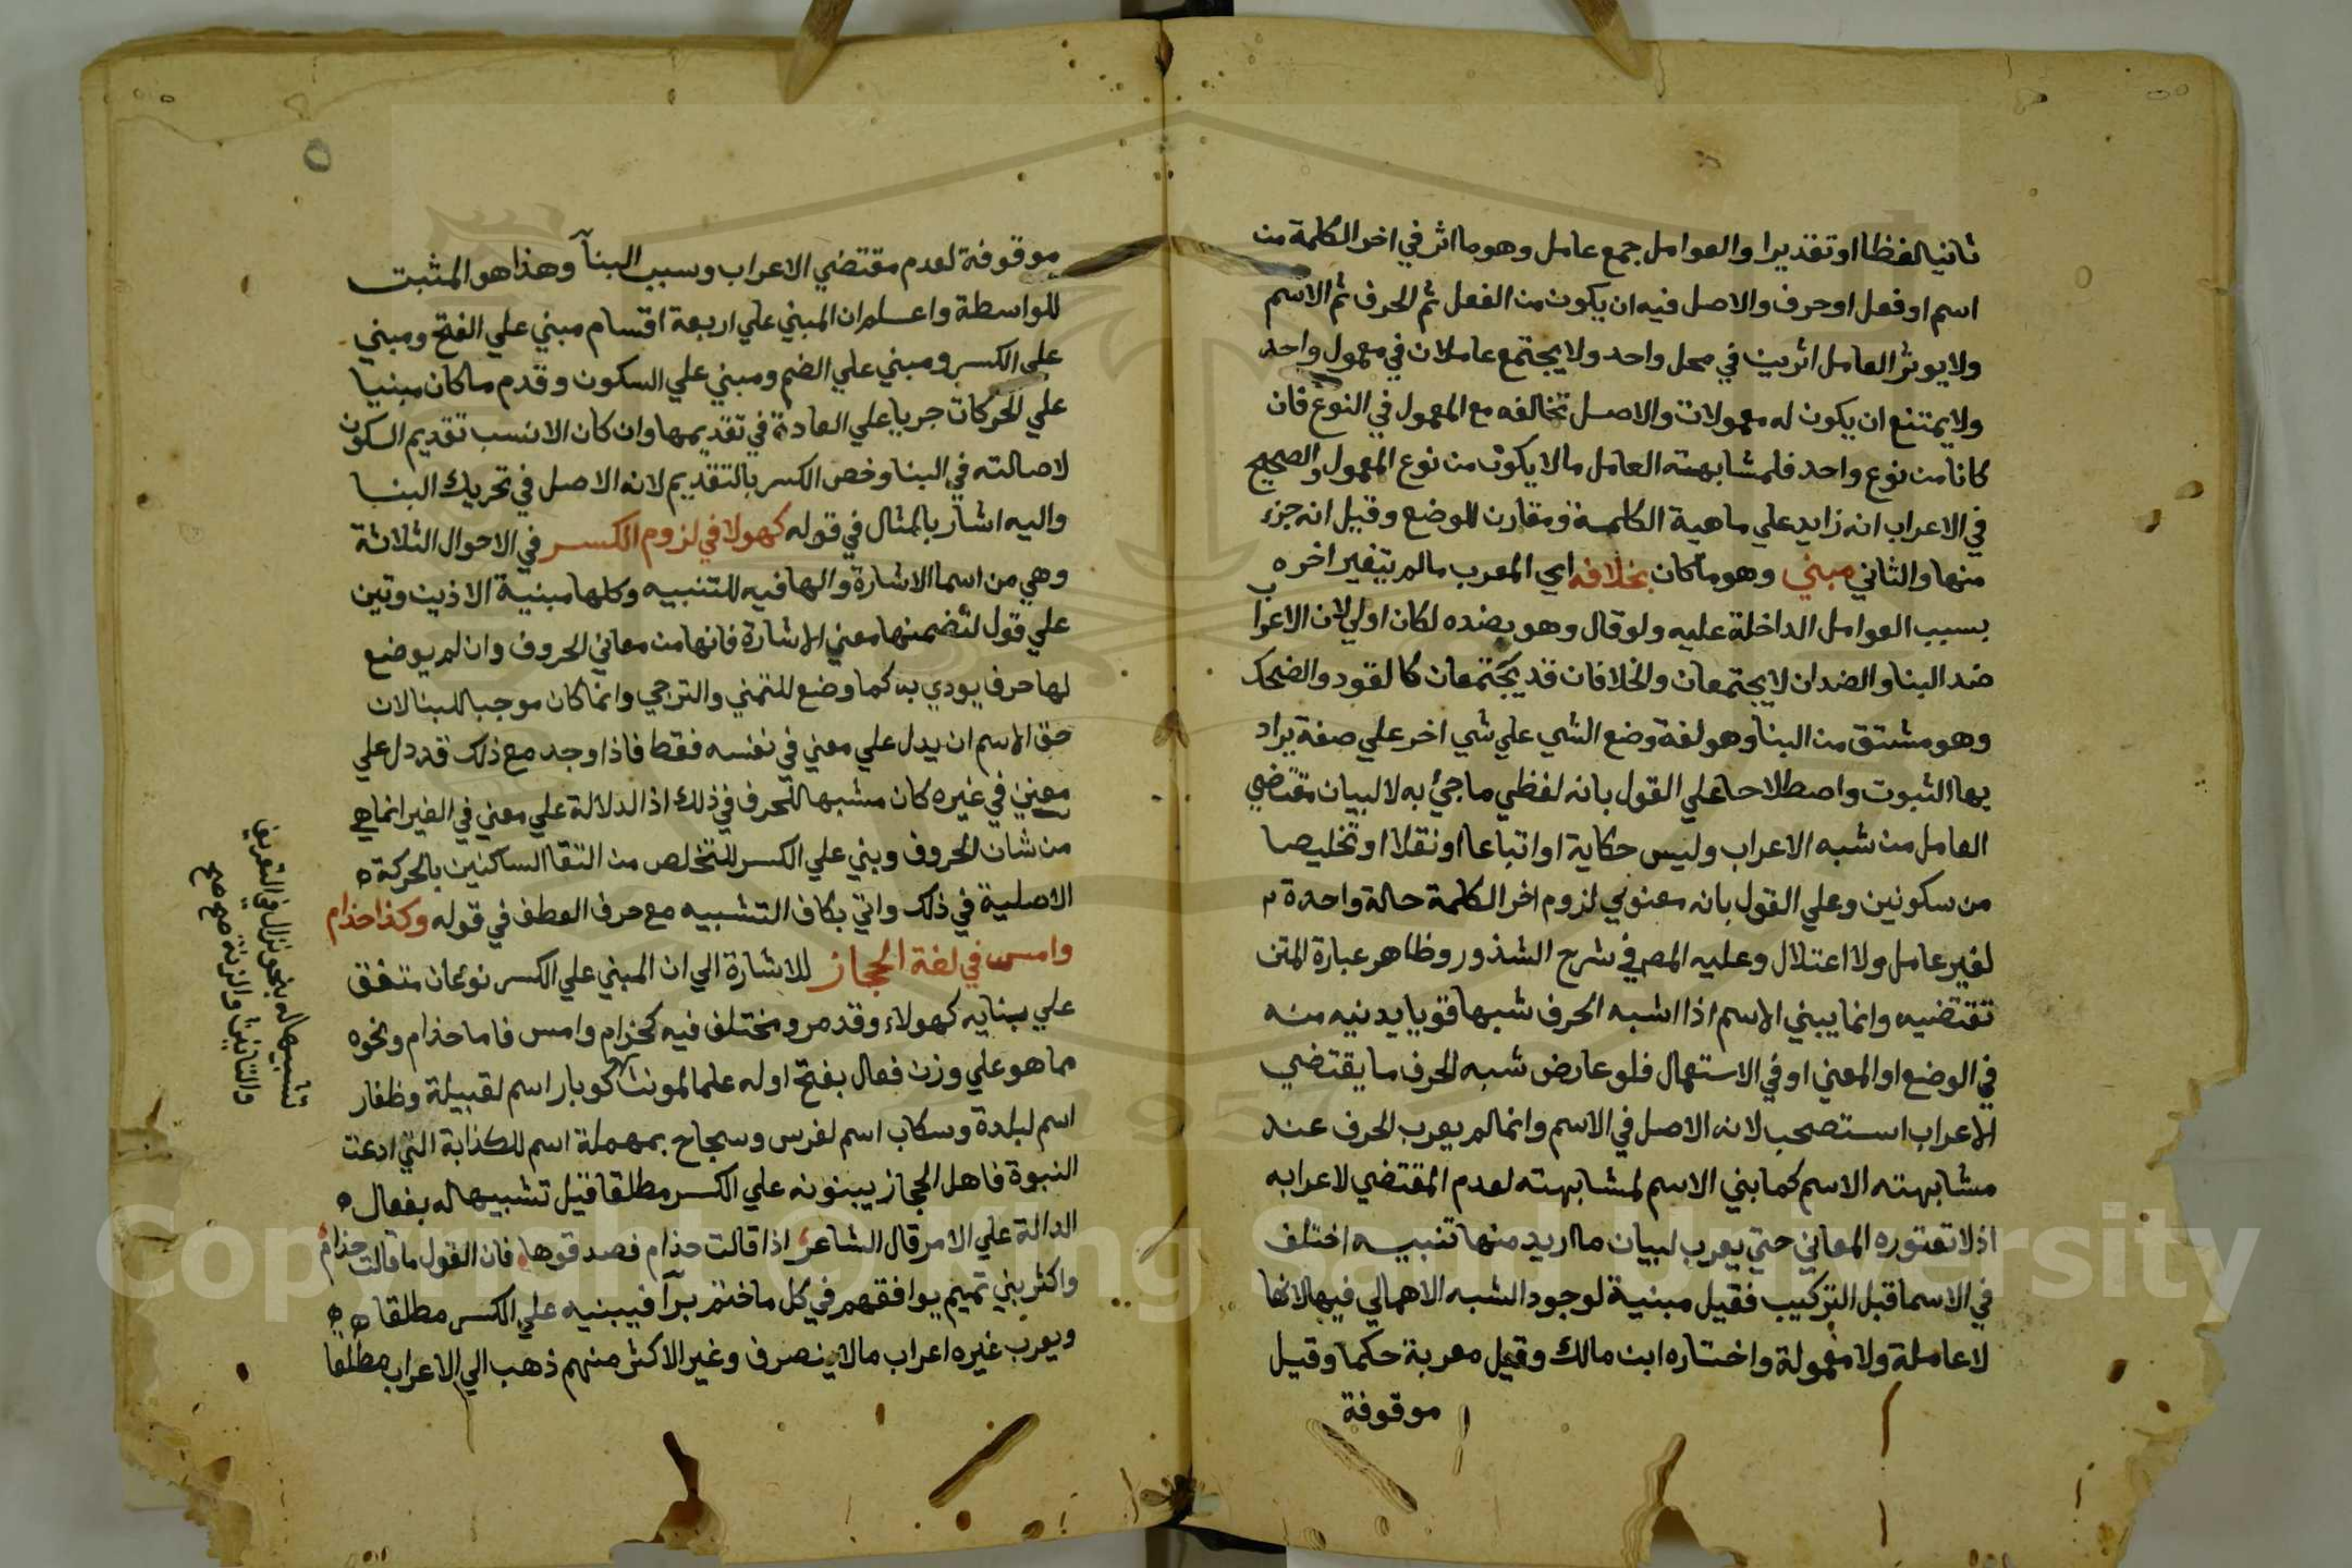 ثانيا لفظا او تقديرا والعوامل جمع عامل وهو ما اثر في اخر الكلمة من
اسم او فعل او حرف والاصل فيه ان يكون من الفعل ثم الحرف ثم الاسم
ولا يوثر العامل اثرين في محل واحد ولا يجتمع عاملان في معمول واحد
ولا يمتنع ان يكون له معمولات والاصل تخالفه مع المعمول في النوع فان
كانا من نوع واحد فلمشابهته العامل ما لا يكون من نوع المعمول والصحيح
في الاعراب انه زايد علي ماهية الكلمة ومقارن للوضع وقيل انه جزء
منها والثاني مبني وهو ما كان بخلافه اي المعرب ما لم يتغير اخره
بسبب العوامل الداخلة عليه ولو قال وهو بضده لكان اولي لان الاعراب
ضد البنا والضدان لا يجتمعان والخلافان قد يجتمعان كالقعود والضحك
وهو مشتق من البنا وهو لغة وضع الشي علي شي اخر علي صفة يراد
بها الثبوت واصطلاحا علي القول بانه لفظي ما جيء به لا لبيان مقتضي
العامل من شبه الاعراب وليس حكاية او اتباعا او نقلا او تخليصا
من سكونين وعلي القول بانه معنوي لزوم اخر الكلمة حالة واحدة
لغير عامل ولا اعتلال وعليه المصر في شرح الشذور وظاهر عبارة المتن
تقتضيه وانما يبني الاسم اذا اشبه الحرف شبها قويا يدنيه منه
في الوضع او المعني او في الاستعمال فلو عارض شبه الحرف ما يقتضي
الاعراب استصحب لانه الاصل في الاسم وانما لم يعرب الحرف عند
مشابهته الاسم كما بني الاسم لمشابهته لعدم المقتضي لاعرابه
اذ لا تعتوره المعاني حتي يعرب لبيان ما اريد منها تنبيه اختلف
في الاسما قبل التركيب فقيل مبنية لوجود الشبه الاهمالي فيها لانها
لا عاملة ولا معمولة واختاره ابن مالك وقيل معربة حكما وقيل
موقوفة
موقوفة لعدم مقتضي الاعراب وسبب البنآ وهذا هو المثبت
للواسطة واعلم ان المبني علي اربعة اقسام مبني علي الفتح ومبني
علي الكسر ومبني علي الضم ومبني علي السكون وقدم ما كان مبنيا
علي الحركات جريا علي العادة في تقديمها وان كان الانسب تقديم السكون
لاصالته في البنا وخص الكسر بالتقديم لانه الاصل في تحريك البنا
واليه اشار بالمثال في قوله كهولا في لزوم الكسر في الاحوال الثلاثة
وهي من اسما الاشارة والها فيه للتنبيه وكلها مبنية الا ذين وتين
علي قول لتضمنها معني الاشارة فانها من معاني الحروف وان لم يوضع
لها حرف يودي به كما وضع للتمني والترجي وانما كان موجبا للبنا لان
حق الاسم ان يدل علي معني في نفسه فقط فاذا وجد مع ذلك قد دل علي
معني في غيره كان مشبها للحرف في ذلك اذ الدلالة علي معني في الغير انما هي
من شان الحروف وبني علي الكسر للتخلص من التقا الساكنين بالحركة
الاصلية في ذلك واتي بكاف التشبيه مع حرف العطف في قوله وكذا حذام
وامس في لغة الحجاز للاشارة الي ان المبني علي الكسر نوعان متفق
علي بنايه كهولاء وقد مر ومختلف فيه كحذام وامس فاما حذام ونحوه
مما هو علي وزن فعال بفتح اوله علما لمونث كوبار اسم لقبيلة وظفار
اسم لبلدة وسكاب اسم لفرس وسجاح بمهملة اسم للكذابة التي ادعت
النبوة فاهل الحجاز يبنونه علي الكسر مطلقا قيل تشبيها له بفعال
الدالة علي الامر قال الشاعر اذا قالت حذام فصدقوها فان القول ما قالت حذام
واكثر بني تميم يوافقهم في كل ما ختم برآ فيبنيه علي الكسر مطلقا
ويعرب غيره اعراب ما لا ينصرف وغير الاكثر منهم ذهب الي الاعراب مطلقا
تشبيها له بنحو نزال في التعريف
والتانيث والزنة صح صح
Copyright © King Saud University
1957